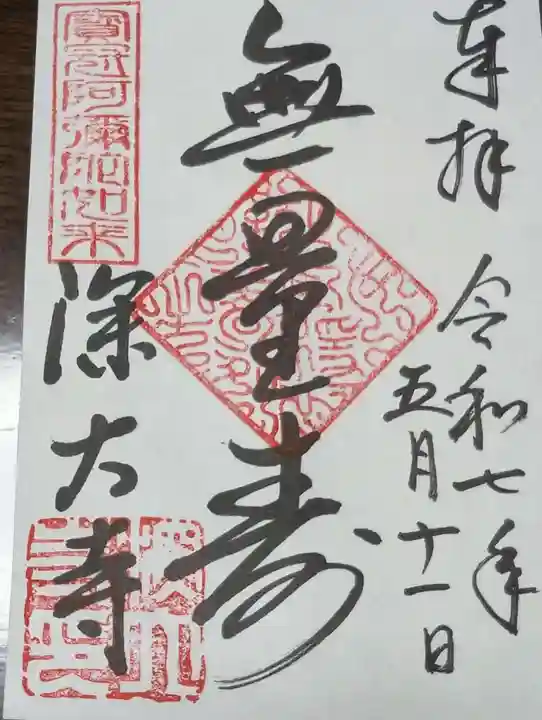 奉拝
令和七年
五月十一日
無量寿
寳冠阿彌陀如来
深大寺